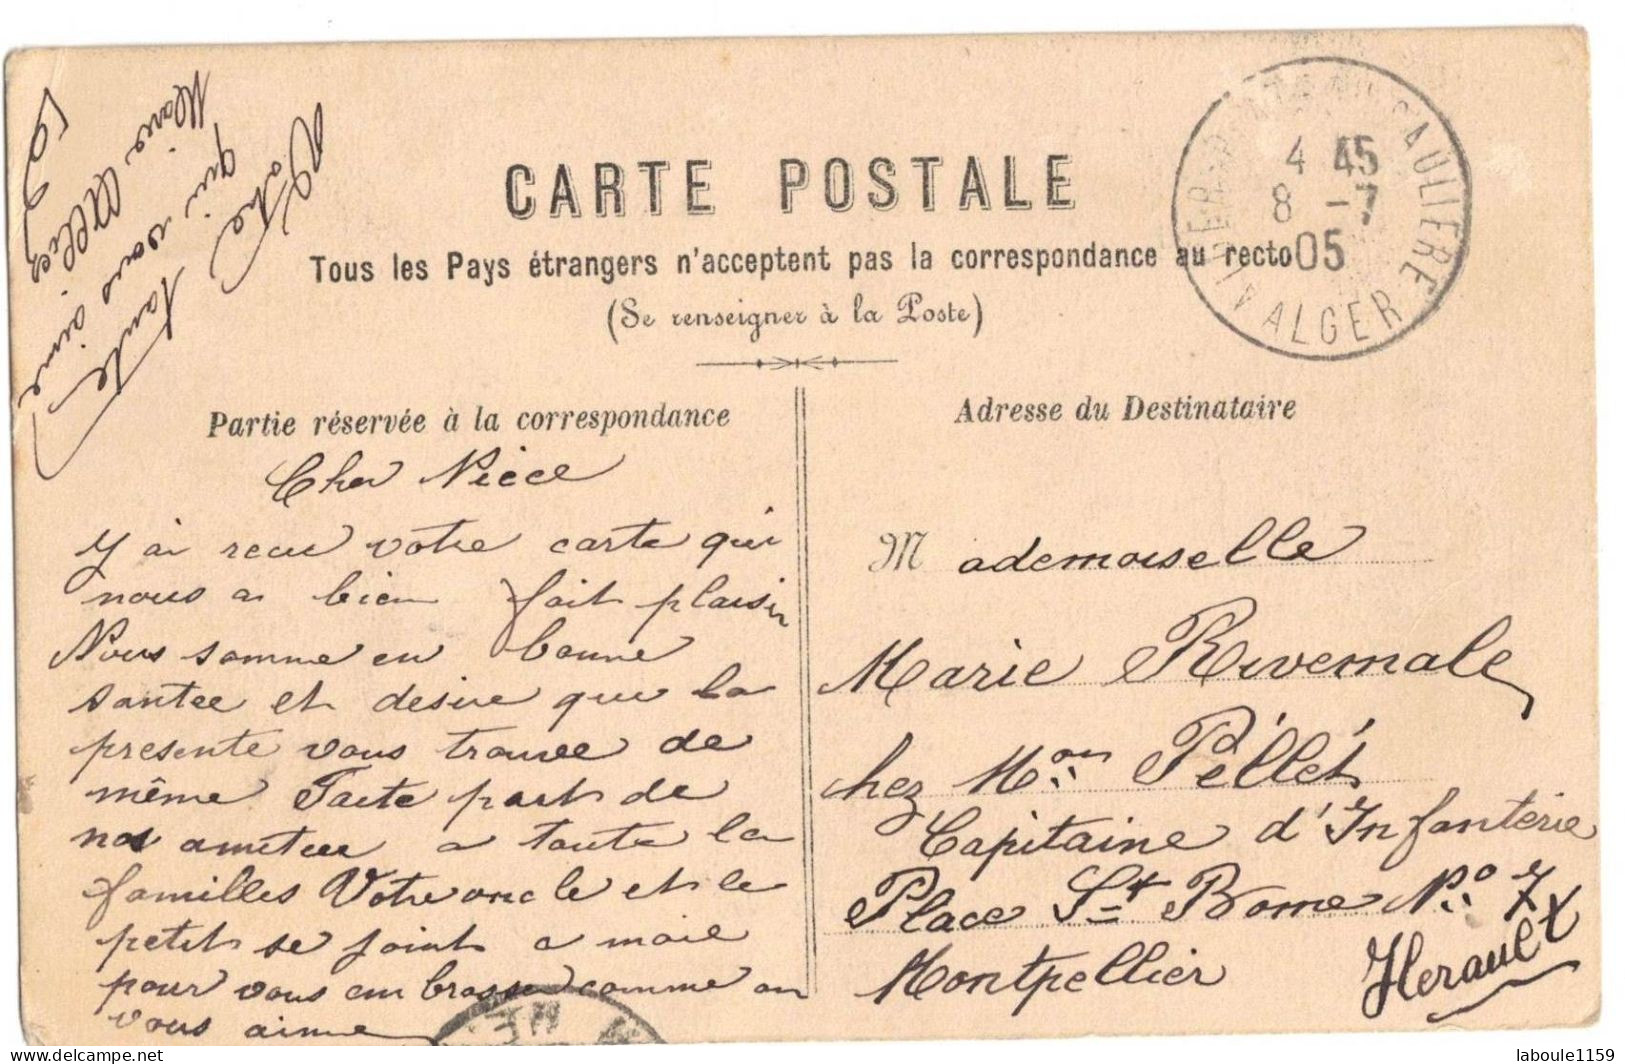 CARTE POSTALE
Tous les Pays étrangers n'acceptent pas la correspondance au recto
(Se renseigner à la Poste)
4 45
8 -7
05
GAULIERE
ALGER
Partie réservée à la correspondance
Cher Niece
J ai recue votre carte qui
nous a bien fait plaisir
Nous somme en bonne
santee et desire que la
presente vous trouve de
même Faite part de
nos amitee a toute la
familles Votre oncle et le
petit se joint a moie
pour vous embrasse comme on
vous aime
Votre tante
qui vous aime
Marie Allies
Adresse du Destinataire
Mademoiselle
Marie Rivemale
chez Mon Péllét
Capitaine d'Infanterie
Place St Rome No 7
Montpellier
Herault
laboule1159